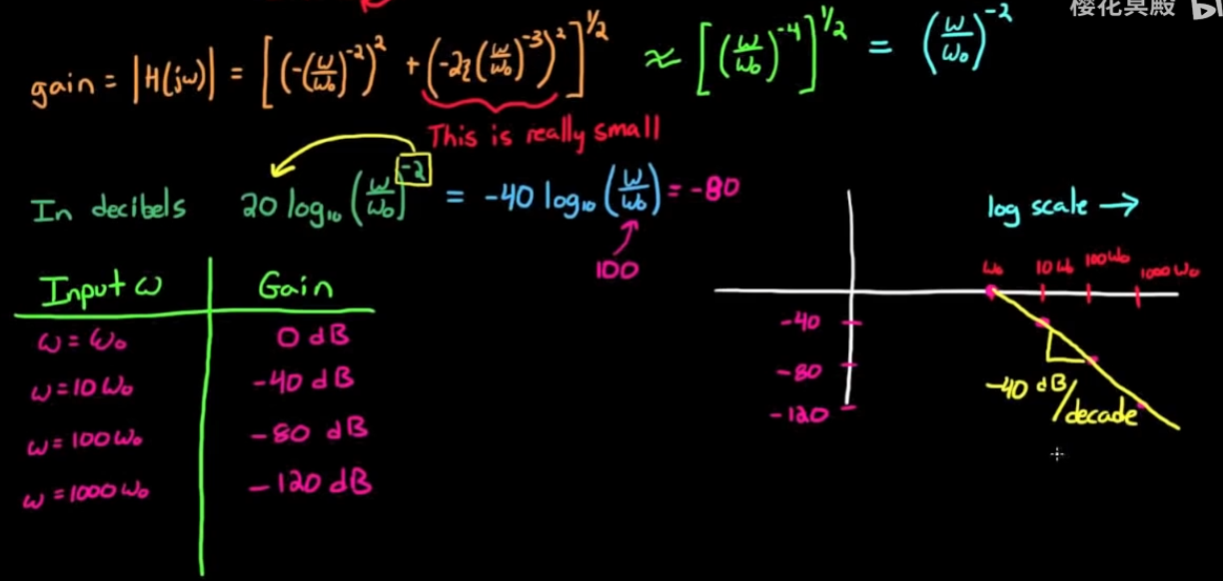 樱花真殿 bl
gain = |H(jω)| = [(-(ω/ω₀)⁻²)² + (-2ζ(ω/ω₀)⁻³)²]^½ ≈ [(ω/ω₀)⁻⁴]^½ = (ω/ω₀)⁻²
This is really small
In decibels 20 log₁₀ (ω/ω₀)⁻² = -40 log₁₀ (ω/ω₀) = -80
100
log scale →
Input ω Gain
ω = ω₀ 0 dB
ω = 10 ω₀ -40 dB
ω = 100 ω₀ -80 dB
ω = 1000 ω₀ -120 dB
ω₀ 10 ω₀ 100 ω₀ 1000 ω₀
-40
-80
-120
-40 dB/decade